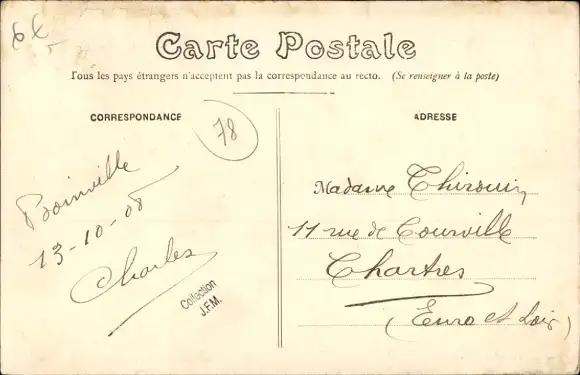 Carte Postale
Tous les pays étrangers n'acceptent pas la correspondance au recto. (Se renseigner à la poste)
CORRESPONDANCE
78
Boinville
13-10-08
Charles
Collection
J.F.M.
ADRESSE
Madame Thirouin
11 rue de Courville
Chartres
(Eure et Loir)